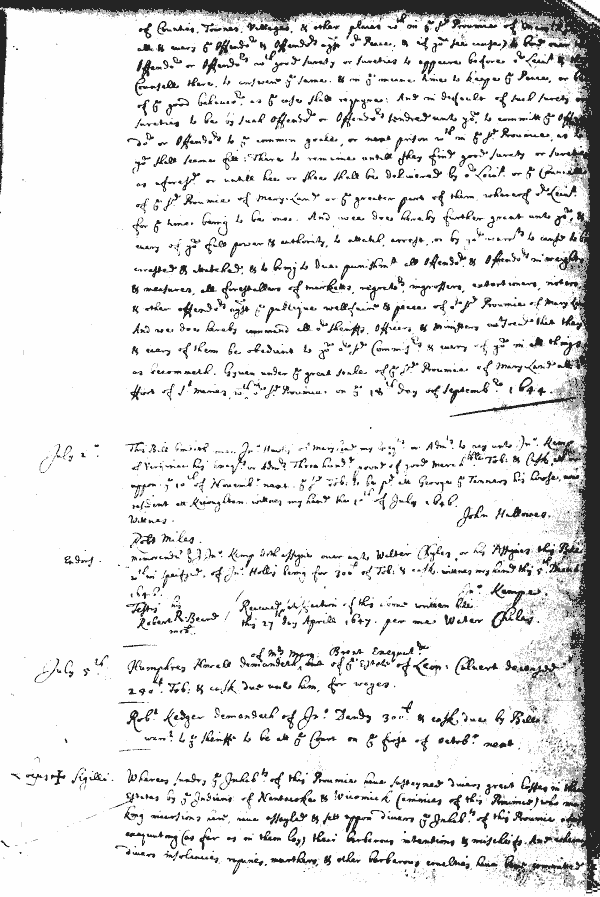 of Counties, Townes, Villages, & other places wth in ye sd Province of
all & every ye Offendor & Offendors agst ye Peace, & (if yu see cause) to bind over
Offendor or Offendors wth good surety or sureties to appeare before or Leiut &
Counsell there, to answere ye same. & in ye meane time to keepe ye Peace, or be
of ye good behavior as ye case shall require: And in default of such surety or
sureties to be by such Offendor or Offendors tendred unto yu to committ ye
or Offendors to ye common goale, or next prison wth in ye sd Province, as to
yu shall seeme fitt: There to remaine untill they find good surety or
as aforesd or untill hee or shee shall be delivered by or Leiut or ye
of ye sd Province of Mary-Land or ye greater part of them, whereof or Leiut
for ye time being to be one. And wee doe hereby further grant unto yu, &
every of yu full power & authority, to attach, arrest, or by yr warrt to cause to be
arrested & attached, & to bring to due punishmt all Offendors & Offendors in weights
& measures, all forestallers of marketts, regrators, ingrossers, extortioners, rioters,
& other offendors agst ye publique wellfaire & peace of or sd Province of Mary
And wee doe hereby command all or sheriffs, Officers, & Ministers that they
& every of them be obedient to yu or sd Commissrs & every of yu in all things
as becommeth. Given under ye great seale of or sd Province of Mary-Land att
ffort of St Maries wth in or sd Province on ye 18th day of Septembr 1644.
July 2.
This Bill bindeth mee Jno of Mary-land my or Admrs to pay unto Jno Kemp
of Virginia his or Admrs Three hundd pound of good Tob: & Cask,
uppon ye 10th of Novembr next. ye sd Tob: to be pd att George Tinners his howse, now
resident att Witnes my hand this of July 1646.
Witnes.
John Hallowes.
Robt Miles.
Endors.
Memorand yt I Jno Kemp doth assigne over unto Walter Chiles, or his Assignes this Bill
wth in specifyed, of Jno Hollis being for 300l of Tob: & cask. witnes my hand this 5th
1646.
Jno Kempe.
Testes his
Robert R: Beard
mrk.
Received satisfaction of this above written bill
this 27th day Aprill 1647. per me Walter Chiles.
July 5th
of Mrs Mary: Brent Executrx
Humphrey Howell demandeth, out of ye Estate of Leon: Calvert deceased
290l Tob: & cask due unto him, for wages.
Robt Kedger demandeth of Jno Dandy 300l & cask, due by Bill.
warrt to ye sheriffe to be att ye Court on ye first of Octobr next.
Locus + Sigilli.
Whereas sundry ye Inhabts of this Province have susteyned divers great losses in their
Estates by ye Indians of Nantecoke & Wicomick (enimies of this Province) who
king incursions here, have assayled & sett uppon divers ye Inhabts of this Province
executing (as far as in them lay) their barbarous intentions & mischiefs. And
divers insolencies, rapines, murthers, & other barbarous cruelties, have been committed